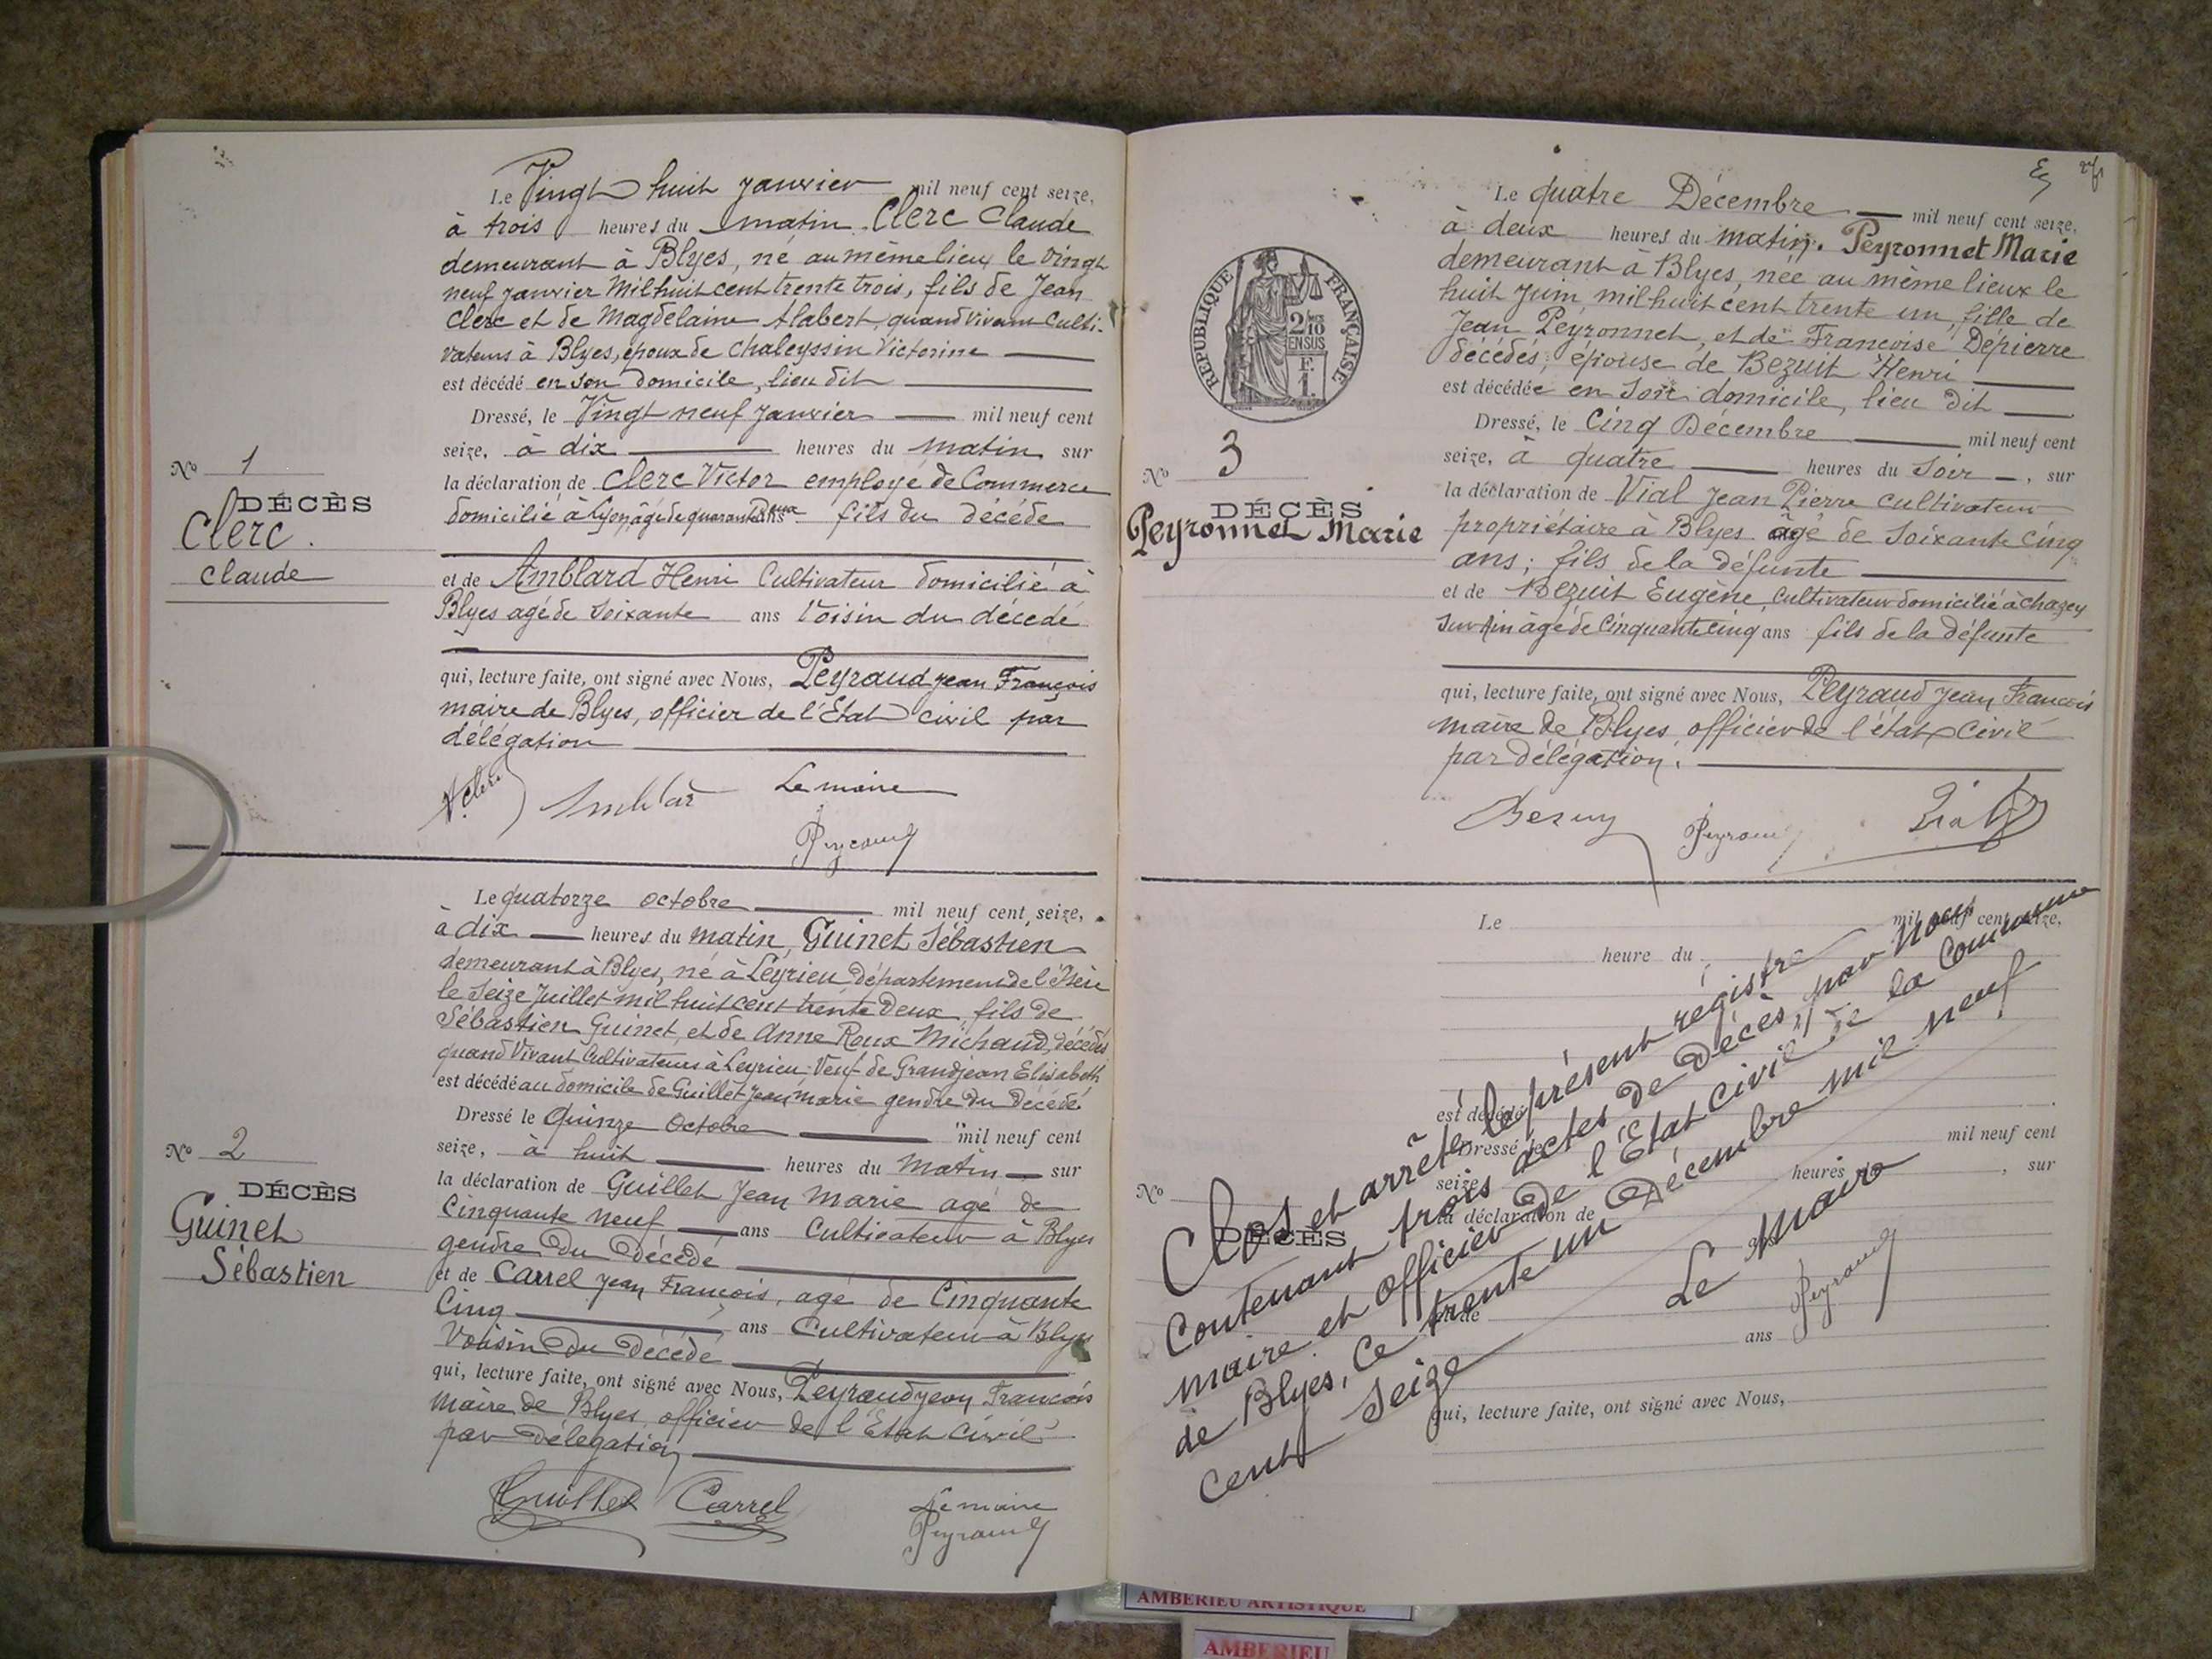 Le Vingt huit janvier mil neuf cent seize,
à trois heures du matin Clerc Claude
demeurant à Blyes, né au même lieux le Vingt
neuf janvier Mil huit cent trente trois, fils de Jean
Clerc et de Magdelaine Alabert, quand vivant Culti-
vateurs à Blyes, époux de Chaleyssin Victorine
est décédé en son domicile, lieu dit
Dressé, le Vingt neuf janvier mil neuf cent
seize, à dix heures du matin sur
la déclaration de Clerc Victor employé de Commerce
domicilié à Lyon, âgé de quarante deux ans fils du décédé
et de Amblard Henri Cultivateur domicilié à
Blyes agé de soixante ans Voisin du décédé
qui, lecture faite, ont signé avec Nous, Peyraud Jean François
maire de Blyes, officier de l'Etat civil par
délégation
V. Clerc Amblar Le maire
Peyraud
No 1
DÉCÈS
Clerc.
Claude
Le quatorze octobre mil neuf cent seize,
à dix heures du matin, Guinet Sébastien
demeurant à Blyes, né à Leyrieu département de l'Isère
le Seize Juillet mil huit cent trente Deux fils de
Sébastien Guinet, et de Anne Roux Michaud, décédés
quand Vivant Cultivateurs à Leyrieu. Veuf de Grandjean Elisabeth
est décédé au domicile de Guillet Jean marie gendre du Décédé.
Dressé le Quinze Octobre mil neuf cent
seize, à huit heures du Matin sur
la déclaration de Guillet Jean Marie agé de
Cinquante neuf ans Cultivateur à Blyes
gendre du Décédé
et de Carrel Jean François, agé de Cinquante
Cinq ans Cultivateur à Blyes
Voisin du Décédé
qui, lecture faite, ont signé avec Nous, Peyraud Jean François
Maire de Blyes, officier de l'Etat Civil
par délégation
Guillet Carrel Le maire
Peyraud
No 2
DÉCÈS
Guinet
Sébastien
Le quatre Décembre mil neuf cent seize,
à deux heures du matin. Peyronnet Marie
demeurant à Blyes, née au même lieux le
huit juin mil huit cent trente un, fille de
Jean Peyronnet, et de Françoise Depierre
décédés, épouse de Bezuit Henri
est décédée en son domicile, lieu dit
Dressé, le Cinq Décembre mil neuf cent
seize, à quatre heures du Soir, sur
la déclaration de Vial Jean Pierre cultivateur
propriétaire à Blyes agé de soixante Cinq
ans; fils de la défunte
et de Bezuit Eugène, Cultivateur domicilié à Chazey
sur Ain âgé de Cinquante Cinq ans fils de la Défunte
qui, lecture faite, ont signé avec Nous, Peyraud Jean François
maire de Blyes officier de l'état Civil
par délégation.
Bezuy Peyraud Vial
RÉPUBLIQUE FRANÇAISE
2/10
EN SUS
F.
1.
No 3
DÉCÈS
Peyronnet Marie
Le mil neuf cent seize,
heure du
est décédé
Dressé, le mil neuf cent
seize, heures du , sur
la déclaration de
ans
et de
ans
qui, lecture faite, ont signé avec Nous,
No
DÉCÈS
Clos et arrêté le présent registre
Contenant trois actes de Décès, par Nous
maire et officier de l'Etat Civil de la Commune
de Blyes, Ce trente un Décembre mil neuf
Cent Seize
Le Maire
Peyraud
AMBERIEU ARTISTIQUE
AMBERIEU